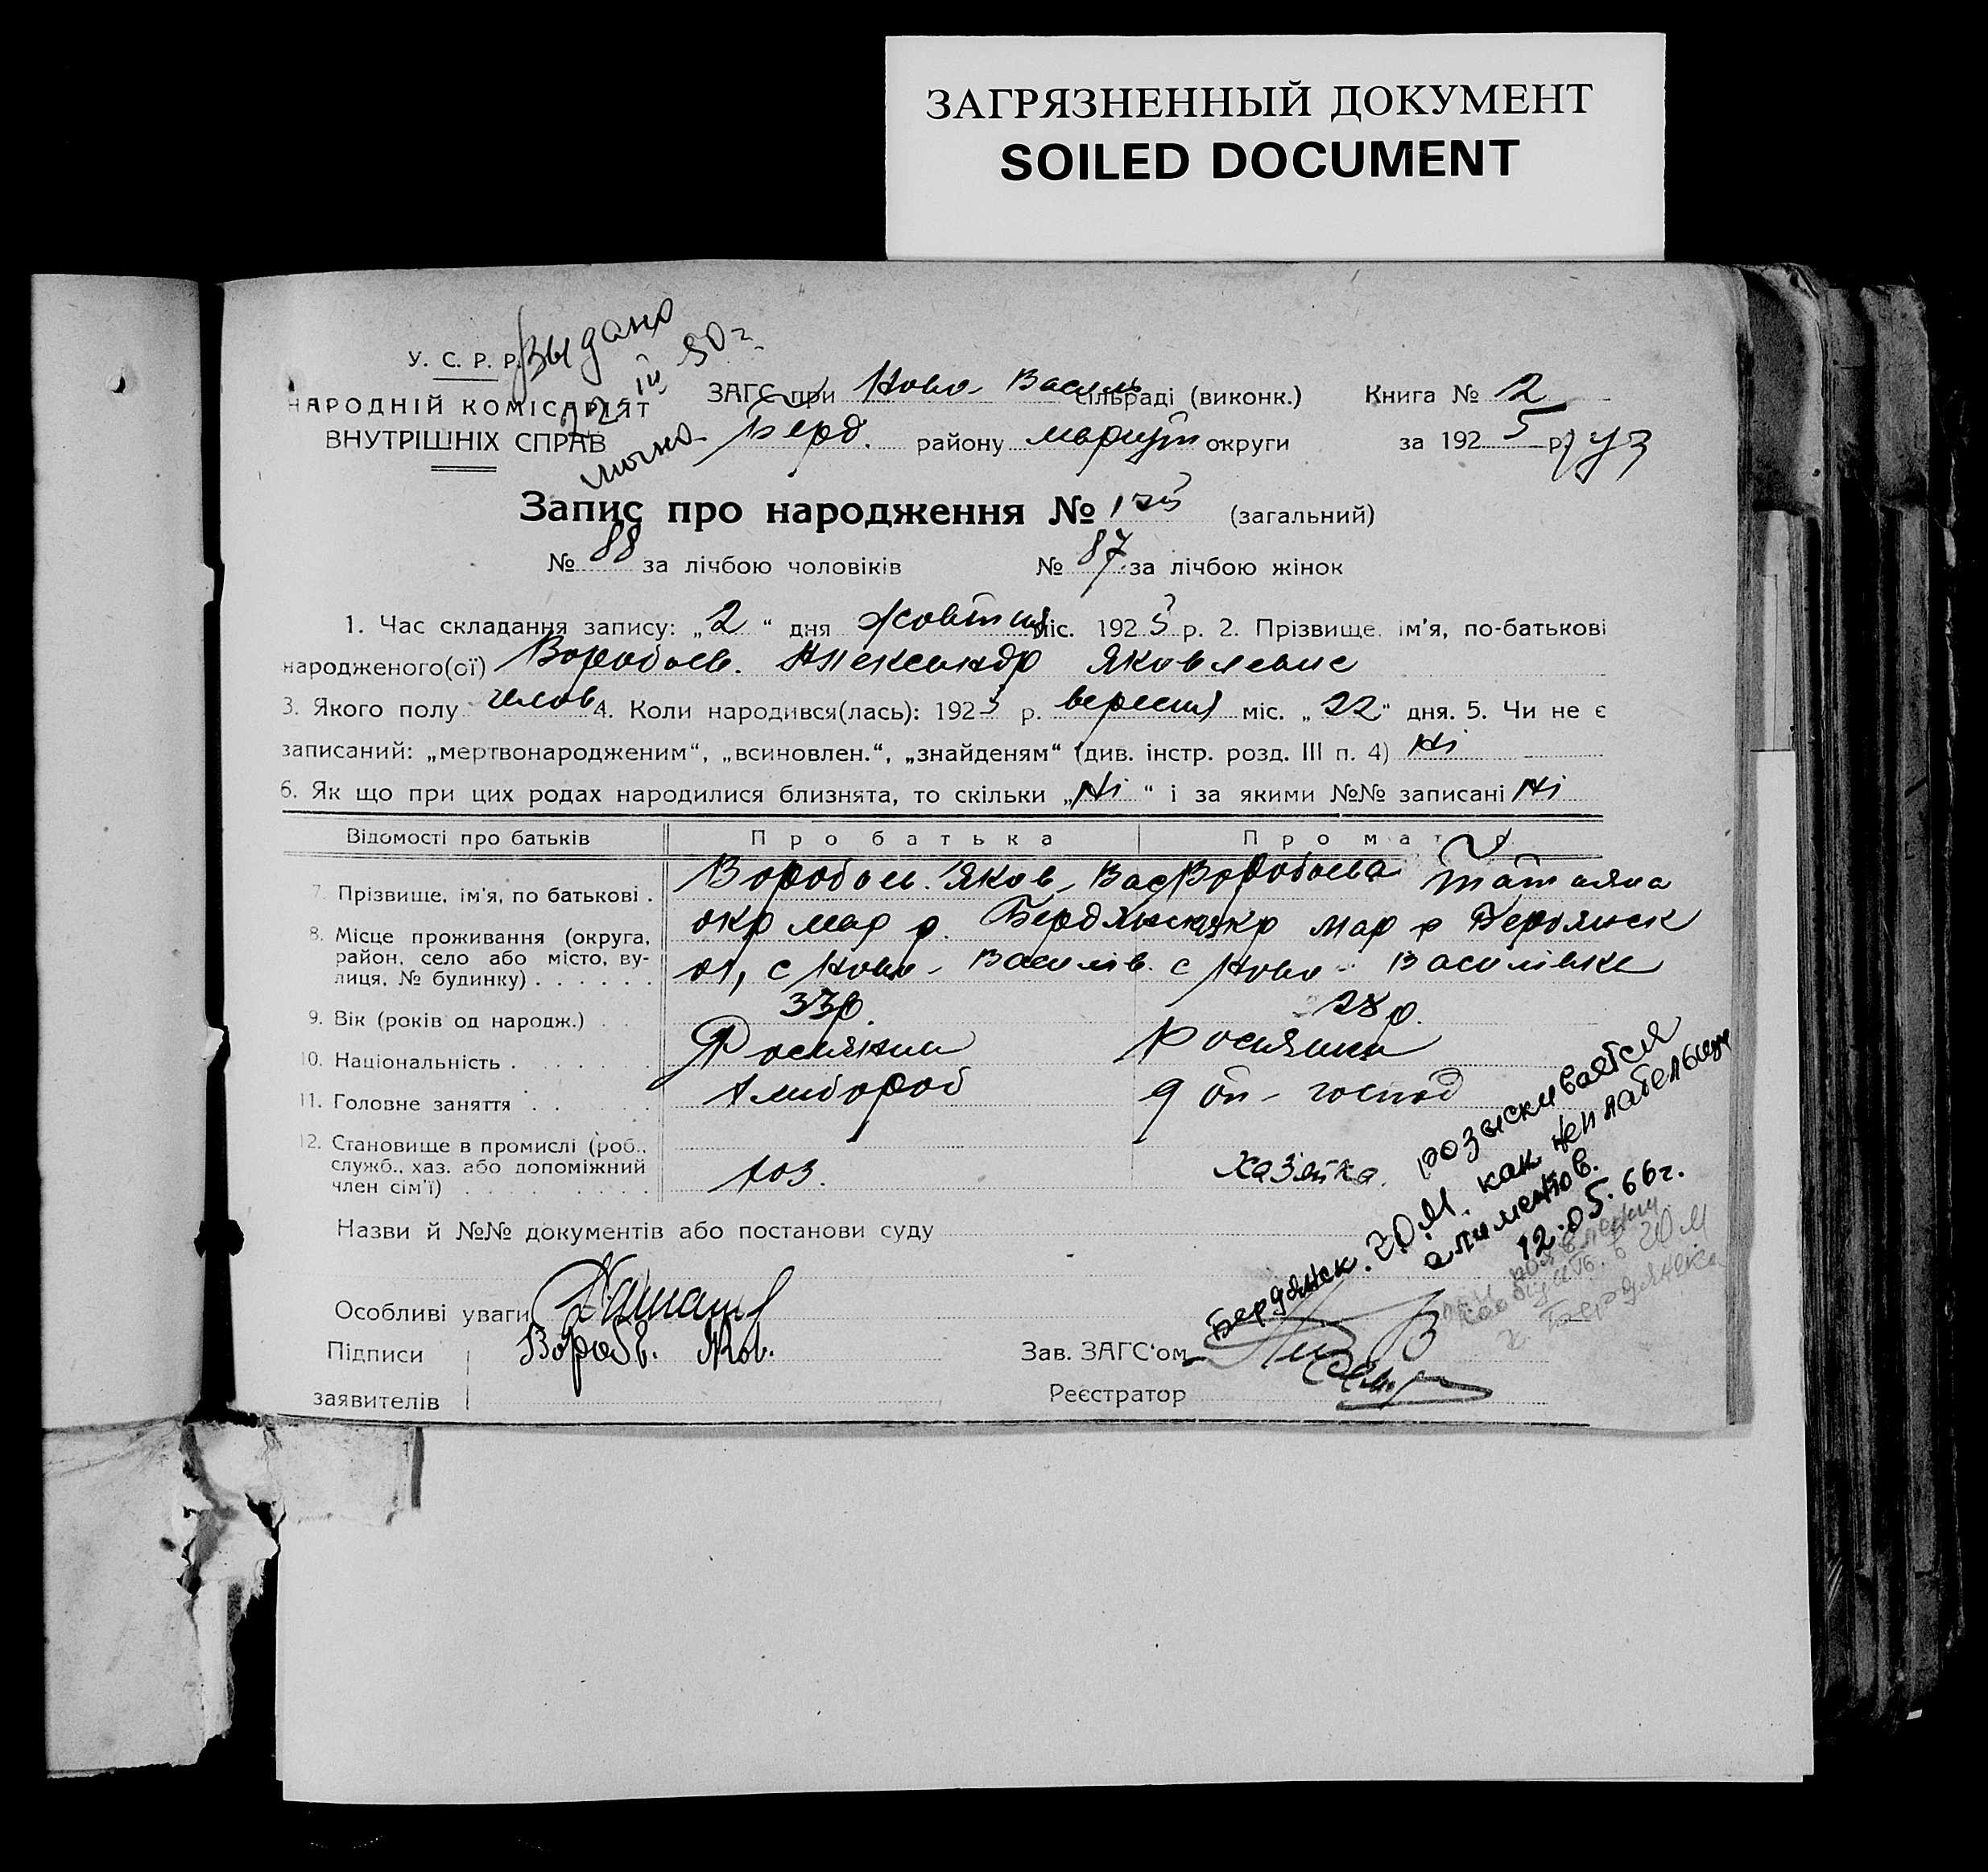 ЗАГРЯЗНЕННЫЙ ДОКУМЕНТ
SOILED DOCUMENT
У. С. Р. Р.
НАРОДНІЙ КОМІСАРІЯТ
ВНУТРІШНІХ СПРАВ
Выдано
50 г.
ЗАГС при Ново-Василь сільраді (виконк.) Книга № 2
Берд. району маріуп округи за 1925 р.
Запис про народження № 175 (загальний)
№ 88 за лічбою чоловіків № 87 за лічбою жінок
1. Час складання запису: „2“ дня жовтня міс. 1925 р. 2. Прізвище, ім'я, по-батькові
народженого(ої) Воробьев. Александр Яковлевис
3. Якого полу челов 4. Коли народився(лась): 1925 р. вересня міс. „22“ дня. 5. Чи не є
записаний: „мертвонародженим“, „всиновлен.“, „знайденям“ (див. інстр. розд. III п. 4) Ні
6. Як що при цих родах народилися близнята, то скільки „Ні“ і за якими №№ записані Ні
Відомості про батьків Про батька Про матір
7. Прізвище, ім'я, по батькові . Воробьев. Яков Вас Воробьева Татьяна
8. Місце проживання (округа, район, село або місто, вулиця, № будинку) . . . . . .
окр мар р. Бердянськ окр мар р Бердянськ
с Ново-Василів. с Ново-Василівке
9. Вік (років од народж.) . . 33 р. 28 р.
10. Національність . . . . . . Росиянин Росиянка
11. Головне заняття . . . . . Хлибороб господ
12. Становище в промислі (роб., служб., хаз. або допоміжний член сім'ї) . . . . . . . . . хоз. хазяйка.
Назви й №№ документів або постанови суду
Особливі уваги
Підписи заявителів Воробь. Яков.
Зав. ЗАГС'ом
Реєстратор
розыскивается
Бердянск. ГОМ. как неплательщик
алиментов.
12.05.66г.
при появлении
сообщить в ГОМ
г. Бердянска